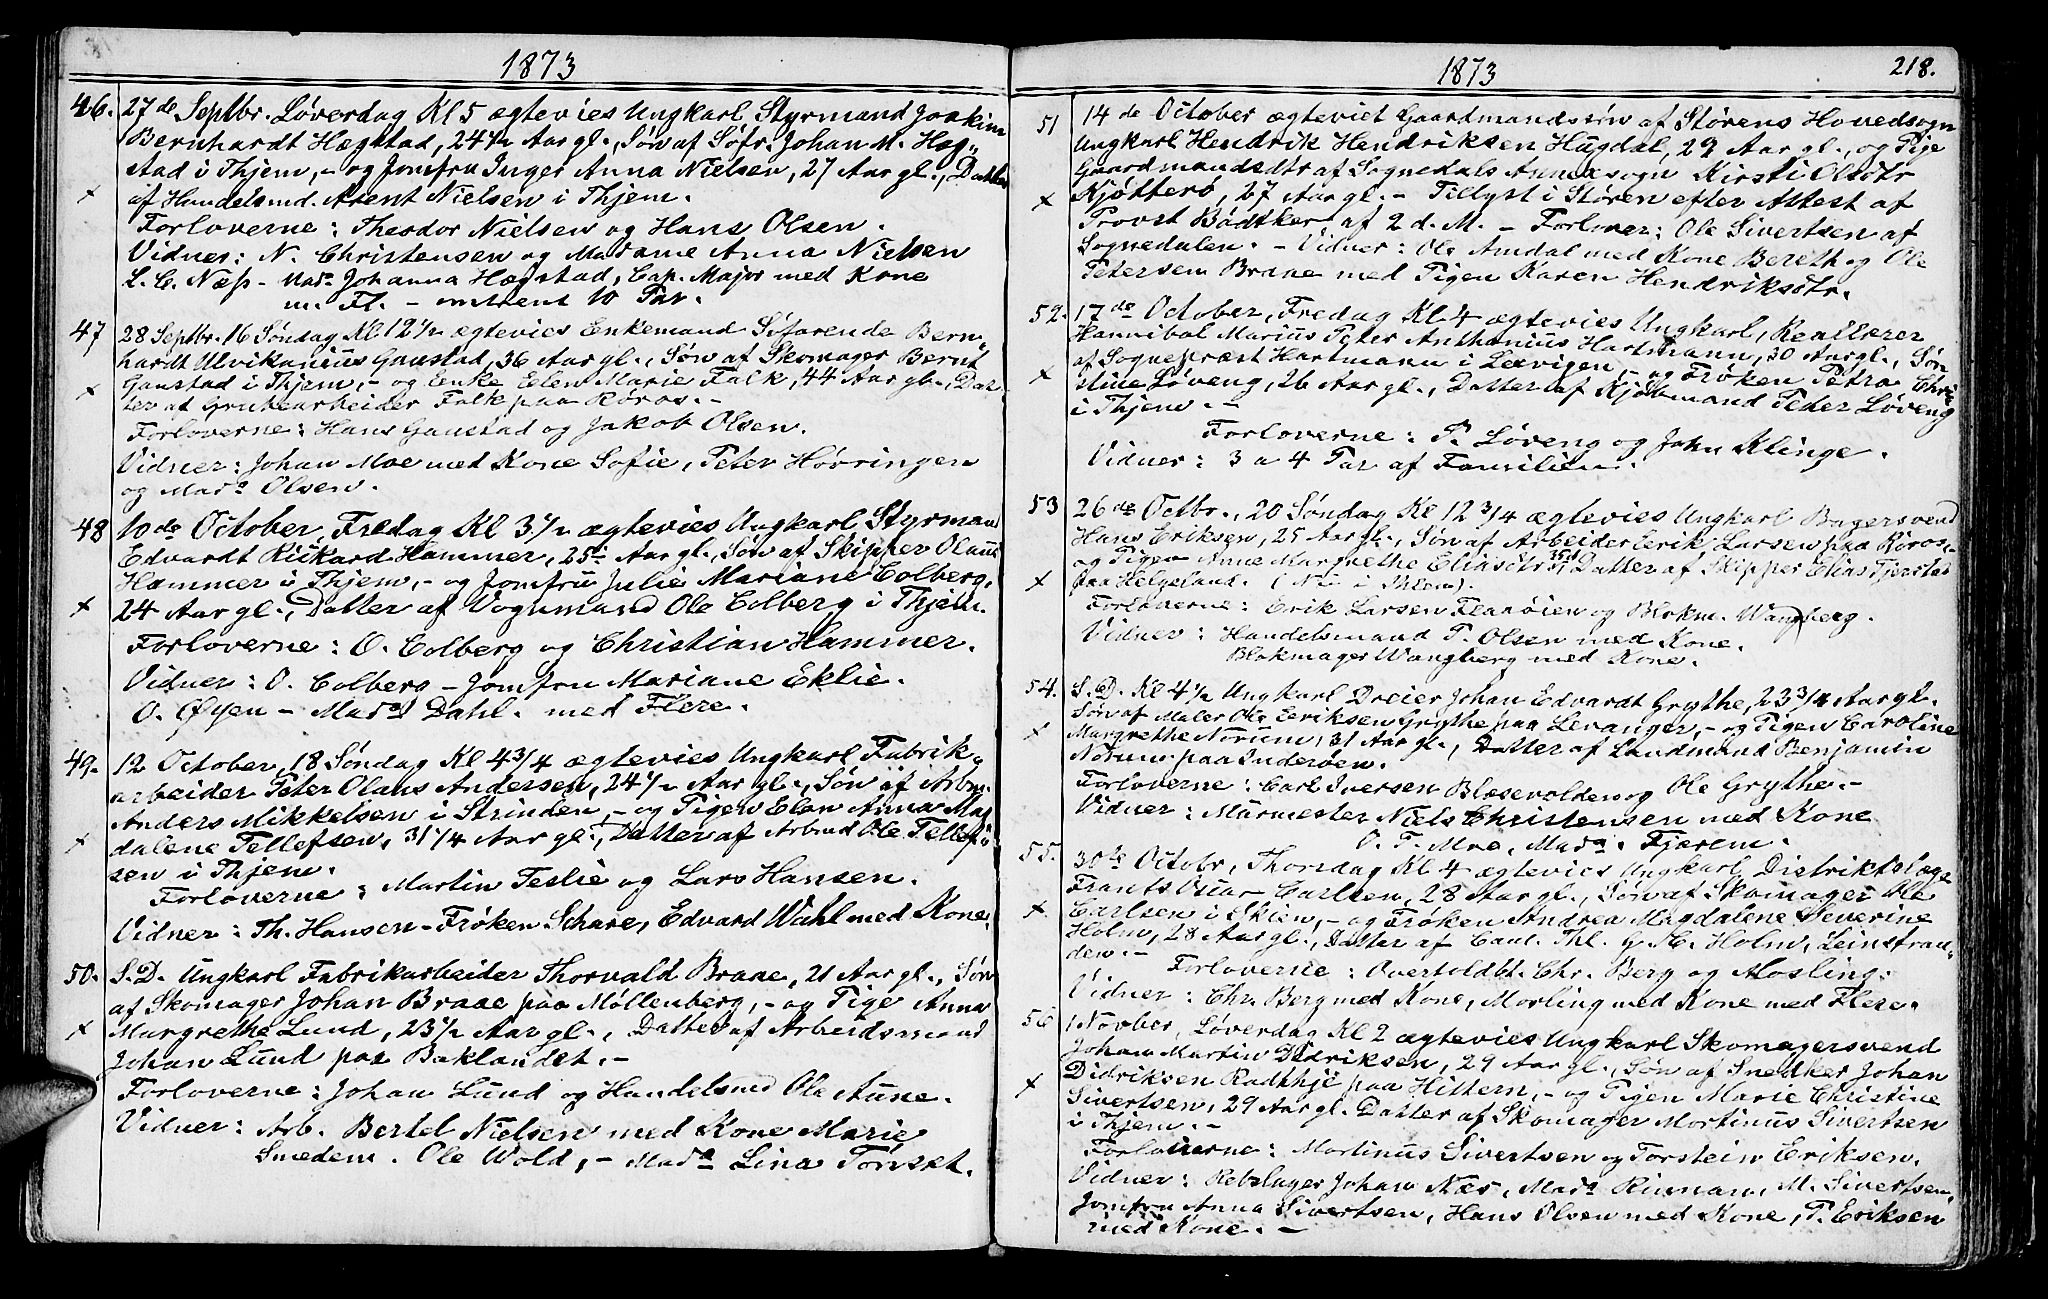 1873
46. 27de Septbr. Løverdag Kl 5 ægtevies Ungkarl Styrmand Joakim
Bernhardt Hægstad, 24 1/2 Aar gl., Søn af Söfr. Johan M. Hæg„
stad i Thjem, – og Jomfru Inger Anna Nielsen, 27 Aar gl., Datter
af Handelsmd. Arent Nielsen i Thjem.
Forloverne: Theodor Nielsen og Hans Olsen.
Vidner: N. Christensen og Madame Anna Nielsen
L. C. Næss – Mada Johanna Hægstad, Cap. Major med Kone
m. Fl. – omtrent 10 Par.
47 28 Septbr. 16 Søndag Kl 12 1/2 ægtevies Enkemand Söfarende Bern„
hardt Ulvikanius Gaustad, 36 Aar gl., Søn af Skomager Bernt
Gaustad i Thjem, – og Enke Elen Marie Falk, 44 Aar gl., Dat„
ter af Grubearbeider Falk paa Røros. –
Forloverne: Hans Gaustad og Jakob Olsen.
Vidner: Johan Moe med Kone Sofie, Peter Hørringen
og Mada Olsen.
48 10de October, Fredag Kl 3 1/2 ægtevies Ungkarl Styrmand
Edvardt Rickard Hammer, 25 Aar gl., Søn af Skipper Olaus
Hammer i Thjem, – og Jomfru Julie Mariane Colberg,
24 Aar gl., Datter af Vognmand Ole Colberg i Thjem.
Forloverne: O. Colberg og Christian Hammer.
Vidner: O. Colberg – Jomfru Mariane Eklie.
O. Øyen – Mada Dahl. med Flere.
49. 12 October, 18 Søndag Kl 4 3/4 ægtevies Ungkarl Fabrik„
arbeider Peter Olaus Andersen, 24 1/2 Aar gl., Søn af Arbm.
Anders Mikkelsen i Strinden, – og Pigen Elen Anna Mag„
dalene Tellefsen, 31 1/4 Aar gl., Datter af Arbmd Ole Tellef„
sen i Thjem.
Forloverne: Martin Teslie og Lars Hansen.
Vidner: Th. Hansen – Frøken Schare, Edvard Wahl med Kone.
50. S. D. Ungkarl Fabrikarbeider Thorvald Braae, 21 Aar gl., Søn
af Skomager Johan Braae paa Møllenberg, – og Pige Anna
Margrethe Lund, 23 1/2 Aar gl., Datter af Arbeidsmand
Johan Lund paa Baklandet. –
Forloverne: Johan Lund og Handelsmd Ole Aune.
Vidner: Arb. Bertel Nielsen med Kone Marie
Smedem. Ole Wold, – Mada Lina Tønset.
1873
218.
51 14de October ægteviet Gaardmandssön af Störens Hovedsogn
Ungkarl Hendrik Hendriksen Hugdal, 29 Aar gl., og Pige
Gaardmandsdtr af Sognedals Annexsogn Kirsti Olsdtr
Kjøtterö, 27 Aar gl. – Tillyst i Støren efter Attest af
Provst Bödtker af 2 d. M. – Forlover: Ole Sivertsen af
Sognedalen. – Vidner: Ole Amdal med Kone Bereth og Ole
Petersen Braae med Pigen Karen Hendriksdtr.
52. 17de October, Fredag Kl 4 ægtevies Ungkarl, Reallærer
Hannibal Marius Peter Anthonius Hartmann, 30 Aar gl., Søn
af Sognepræst Hartmann i Leevigen, – og Frøken Petra Chri„
stine Løveng, 26 Aar gl., Datter af Kjöbmand Peter Løveng
i Thjem. –
Forloverne: P. Løveng og John Klinge.
Vidner: 3 a 4 Par af Familien.
53 26de Octbr., 20 Søndag Kl 12 3/4 ægtevies Ungkarl Bagersvend
Hans Eriksen, 25 Aar gl., Søn af Arbeider Erik Larsen paa Røros, –
og Pigen Anne Margrethe Eliasdtr, Datter af Skipper Elias Tjerstad
paa Helgeland. (Nu i Thjem).
Forloverne: Erik Larsen Flanøien og Blokm. Wangberg.
Vidner: Handelsmand P. Olsen med Kone.
Blokmager Wangberg med Kone.
54. S. D. Kl 4 1/2 Ungkarl Dreier Johan Edvardt Grythe, 22 3/4 Aar gl.
Søn af Maler Ole Eeriksen Grythe paa Levanger, – og Pigen Caroline
Margrethe Norum, 31 Aar gl., Datter af Landmand Benjamin
Norum paa Inderøen.
Forloverne: Carl Iversen Blæsevolden og Ole Grythe. –
Vidner: Murmester Niels Christensen med Kone
O. T. Moe, Mada Fjærem.
55. 30te Octobr, Thorsdag Kl 4 ægtevies Ungkarl, Distriktslæge
Frants Oscar Carlsen, 28 Aar gl., Søn af Skomager Ole
Carlsen i Skien, – og Frøken Andrea Magdalene Severine
Holm, 28 Aar gl., Datter af Cand. Thl. G. H. Holm, Leinstran„
den. –
Forloverne: Overtoldbt. Chr. Berg og Mosling.
Vidner: Chr. Berg med Kone, Morling med Kone med Flere.
56 1 Novber, Løverdag Kl 2 ægtevies Ungkarl Skomagersvend
Johan Martin Didriksen, 29 Aar gl., Søn af Snedker Johan
Didriksen Radthje paa Hittern, – og Pigen Marie Christine
Sivertsen, 29 Aar gl. Datter af Skomager Martinus Sivertsen
i Thjem. –
Forloverne: Martinus Sivertsen og Torstein Eriksen.
Vidner: Rebslager Johan Næs, Mada Rinnan, M. Sivertsen,
Jomfru Anna Sivertsen, Hans Olsen med Kone, T. Eriksen
med Kone. –